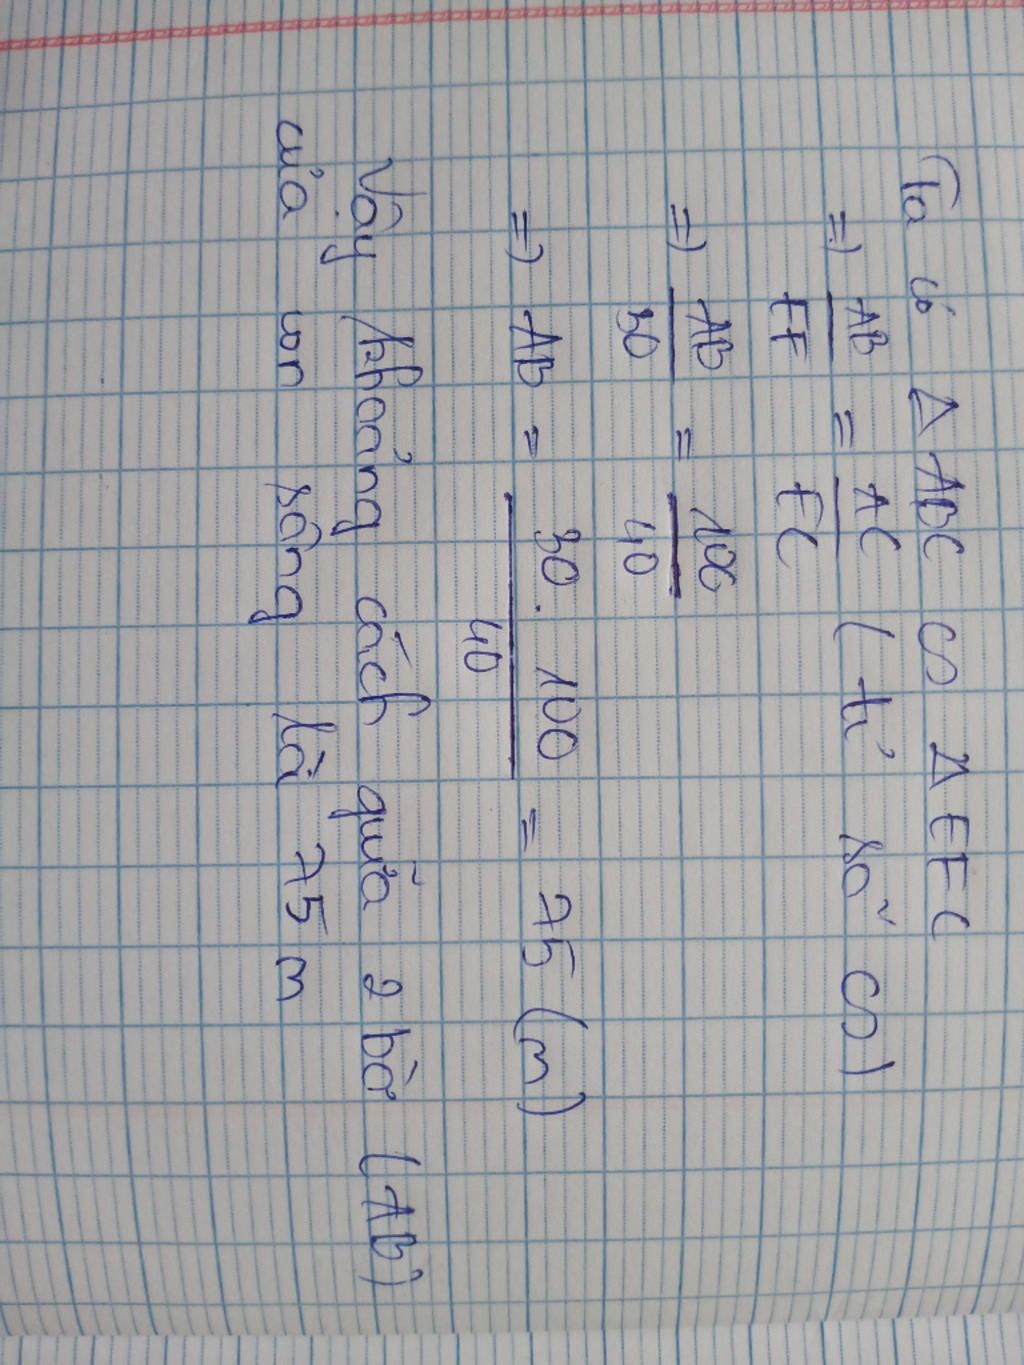 Ta có Δ ABC ∽ Δ EFC
=> AB/EF = AC/EC (tỉ số ∽)
=> AB/30 = 100/40
=> AB = 30. 100/40 = 75 (m)
Vậy khoảng cách giữa 2 bờ (AB)
của con sông là 75 m